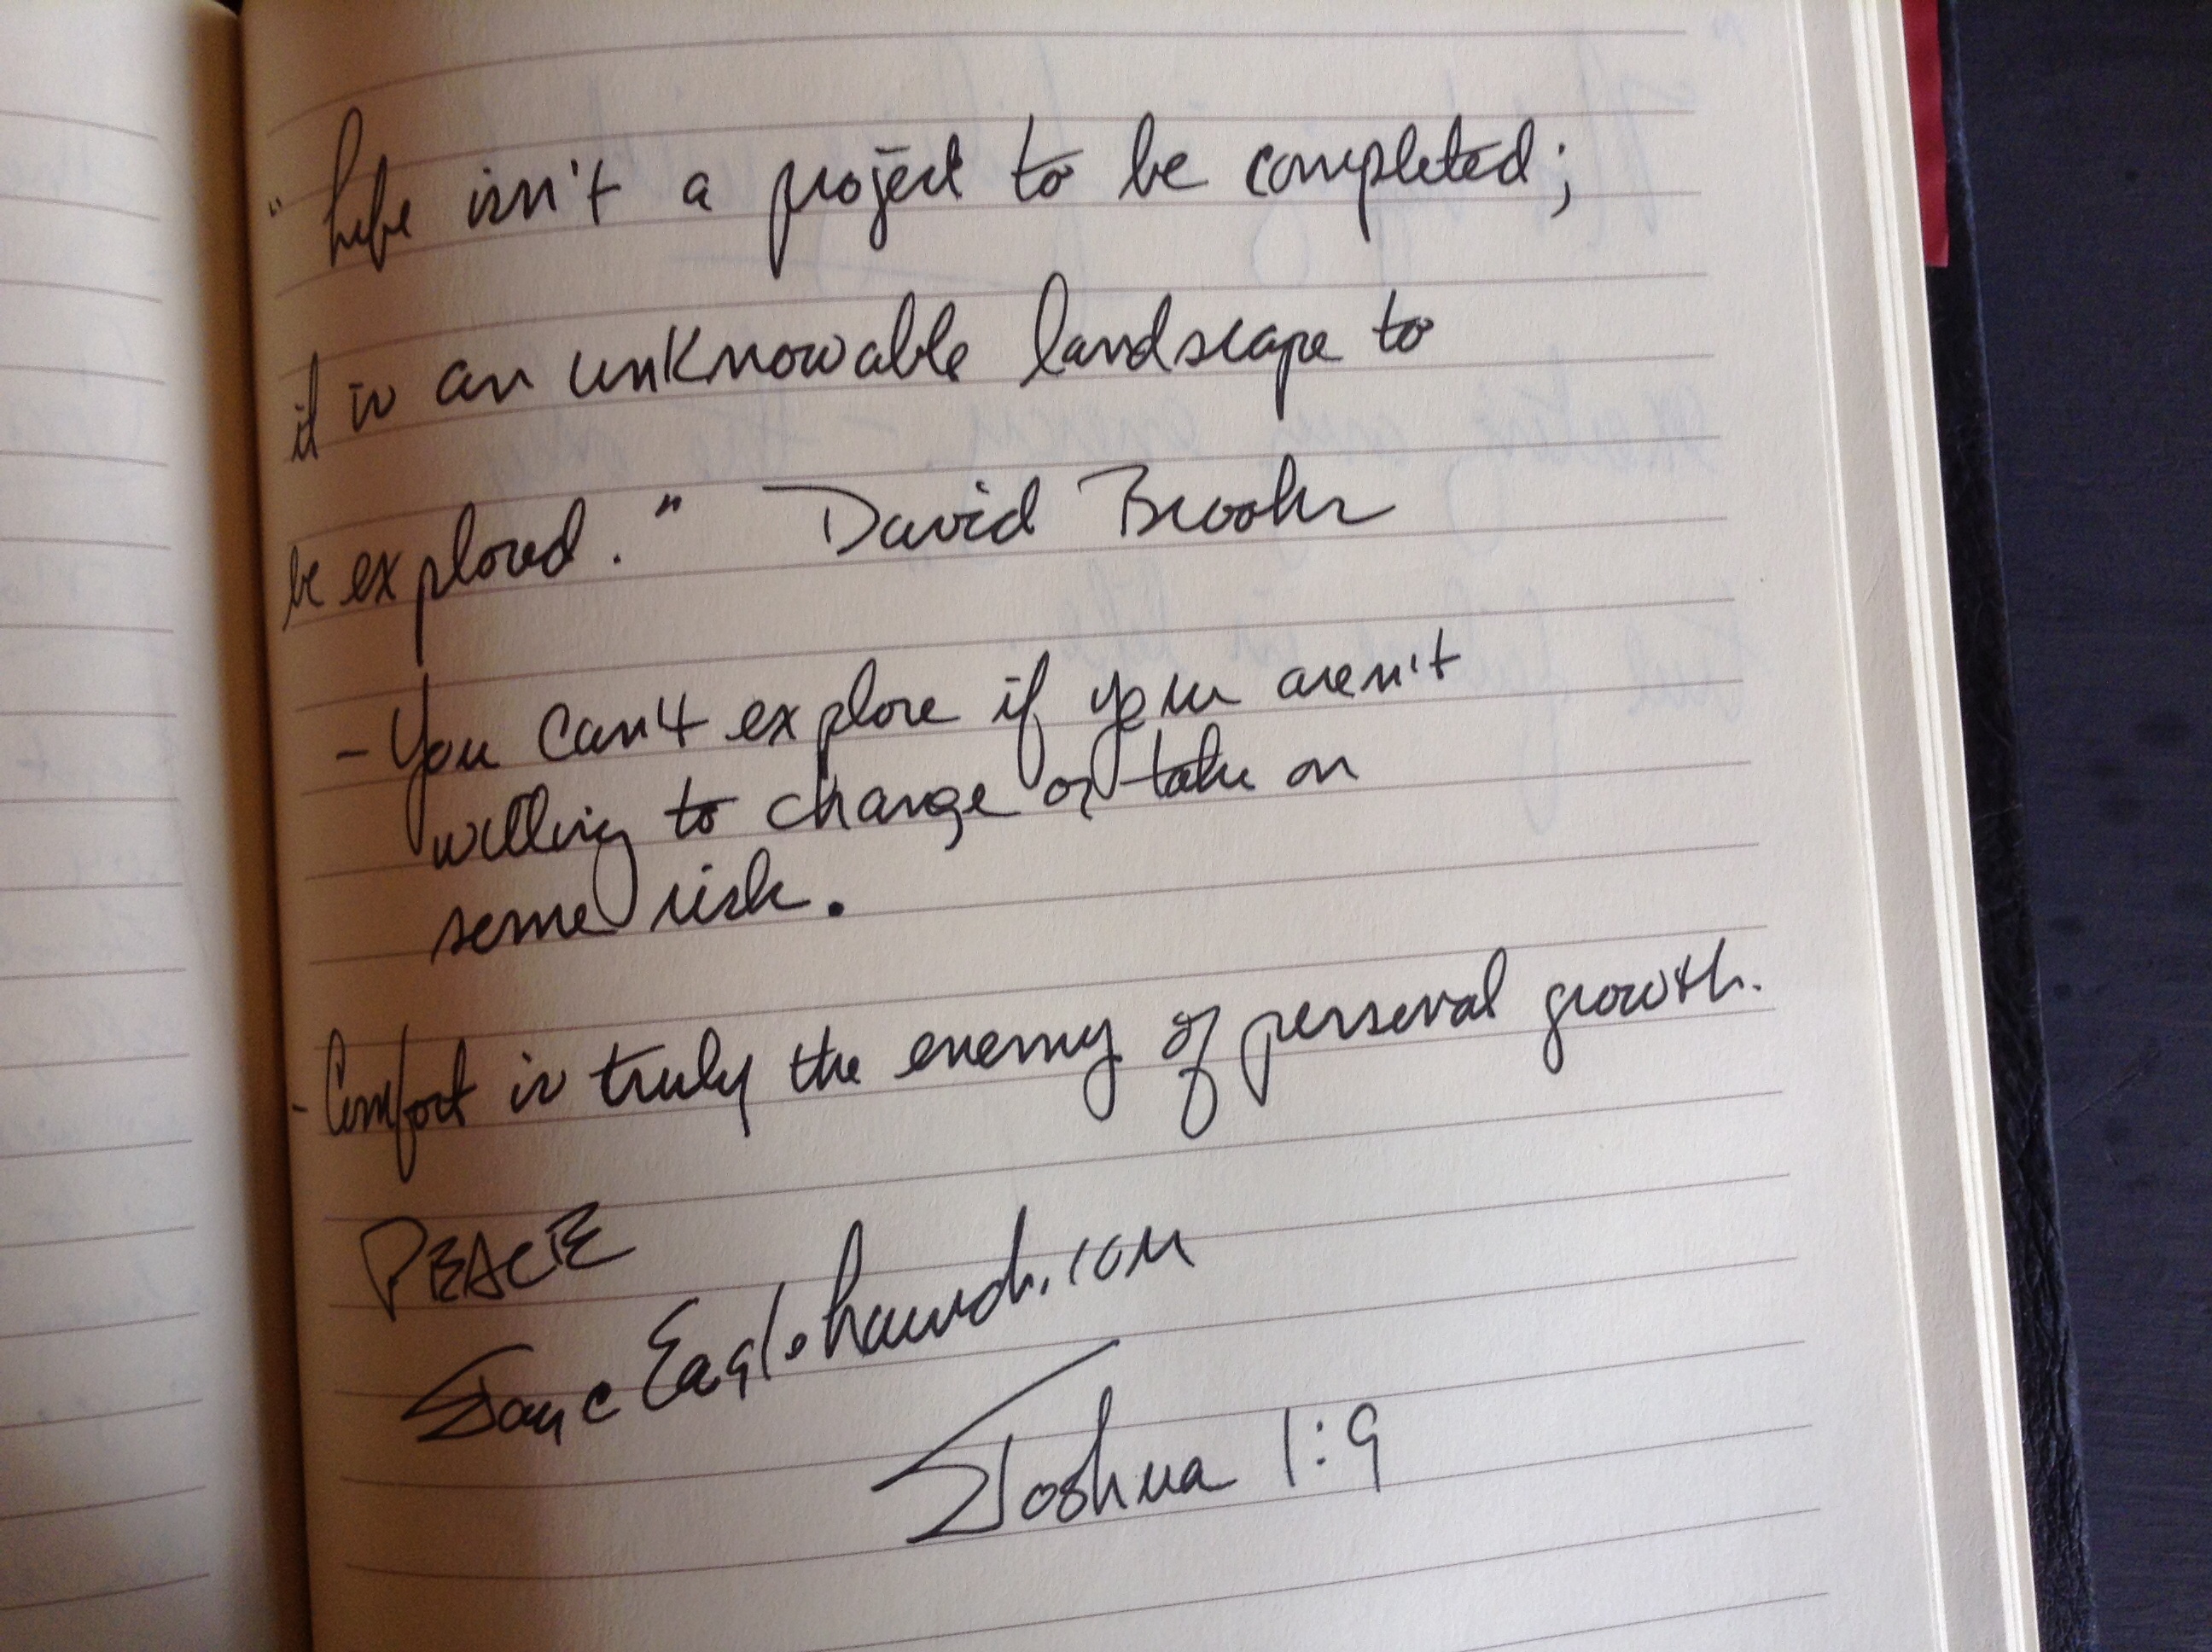 "Life isn't a project to be completed;
it is an unknowable landscape to
be explored." David Brooks
- You can't explore if you aren't
willing to change or take on
some risk.
- Comfort is truly the enemy of personal growth.
PEACE
Jay c Eaglehawk.com
Joshua 1:9